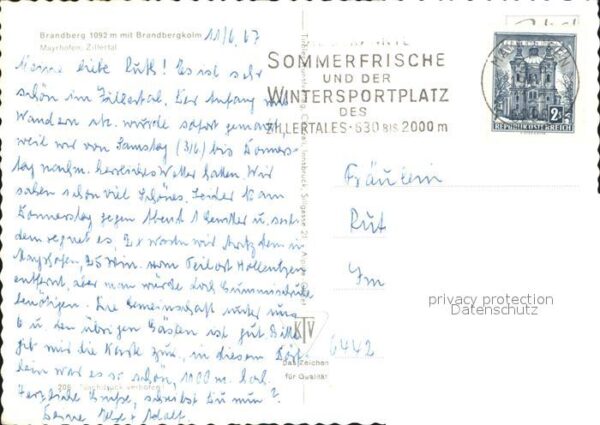 Brandberg 1092 m mit Brandbergkolm
Mayrhofen, Zillertal
11/6. 67
Meine liebe Ruth! Es ist sehr
schön im Zillertal. Der Anfang mit
Wandern etc. wurde sofort gemacht
weil wir von Samstag (3/6) bis Donners-
tag nachm. herrliches Wetter hatten. Wir
sahen schon viel Schönes. Leider kam
Donnerstag gegen Abend 1 Gewitter u. seit-
dem regnet es, 2 x waren wir trotzdem in
Mayrhofen, 25 Min. vom Teilort Hollenzen
entfernt, aber man würde doch Gummischuhe
benötigen. Die Gemeinschaft unter uns
6 u. den übrigen Gästen ist gut. Bitte
gib mir die Karte zurück, in diesem Dörf-
lein war es so schön, 1100 m. hoch.
Herzliche Grüße, schreibst Du mir?
Deine
SOMMERFRISCHE
UND DER
WINTERSPORTPLATZ
DES
ZILLERTALES · 630 BIS 2000 m
2 S
REPUBLIK ÖSTERREICH
Fräulein
Rut
Im
6442
privacy protection
Datenschutz
KTV
Das Zeichen
für Qualität
206 Nachdruck verboten